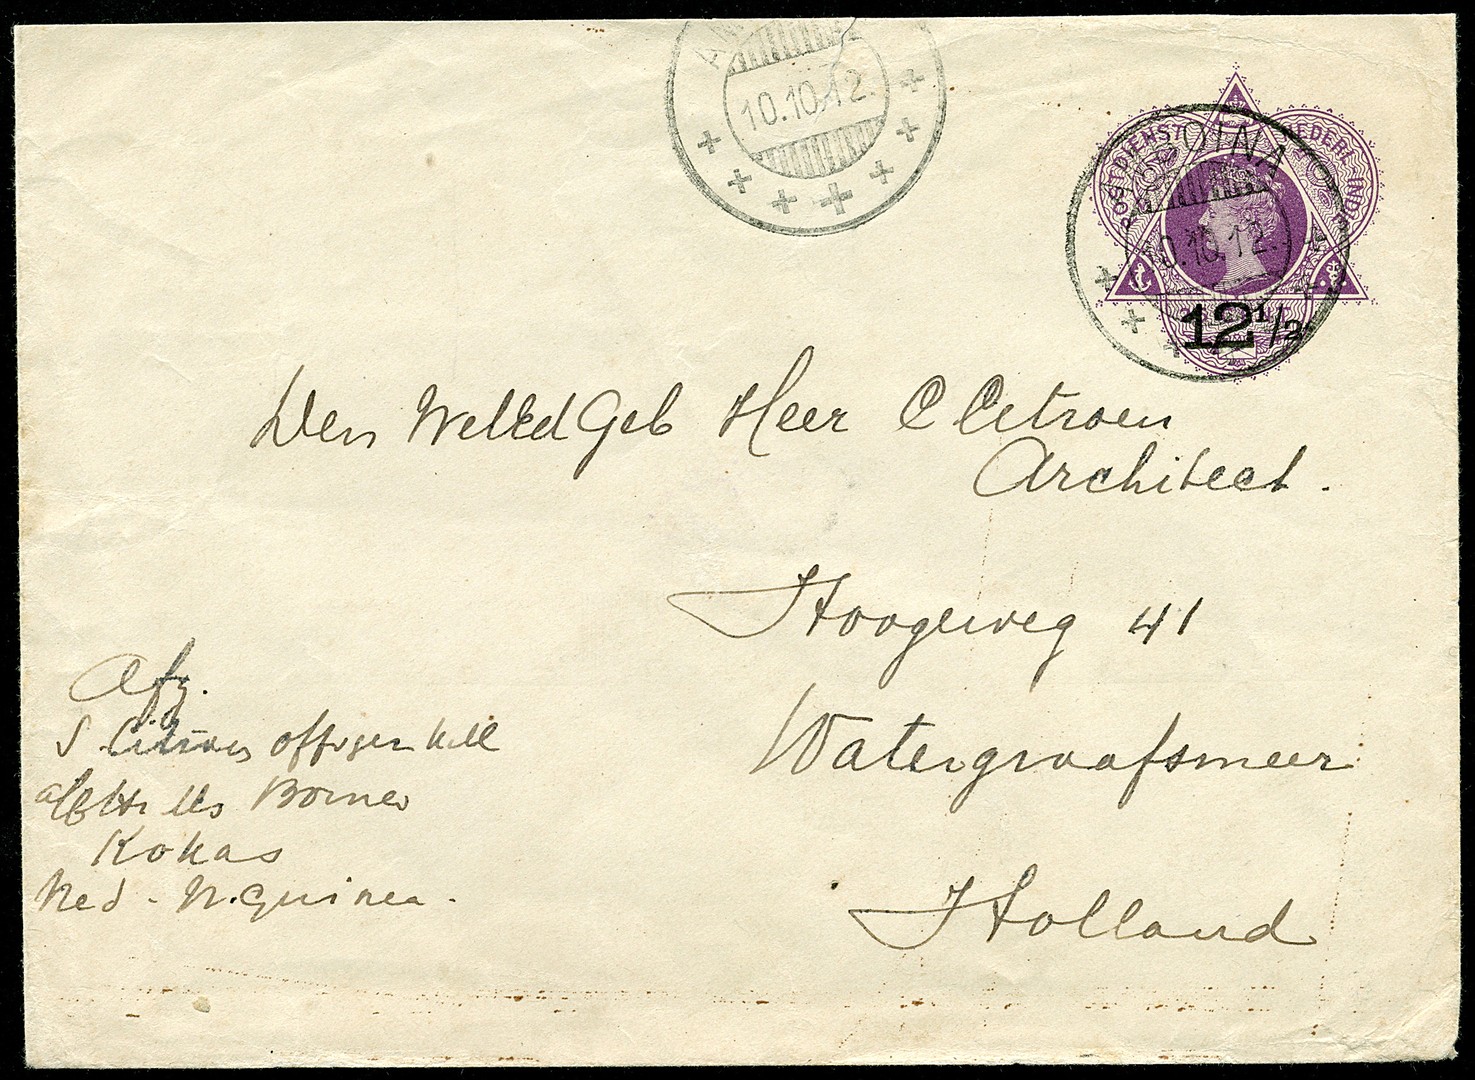 10.10.12.
POSTDIENST NEDERL. INDIË
10.10.12.
12 1/2
Den WelEdGeb Heer C Citroen
Architect.
Hoogeweg 41
Watergraafsmeer
Holland
Afz.
S. Citroen
Borneo
Kokas
Ned - N. Guinea.